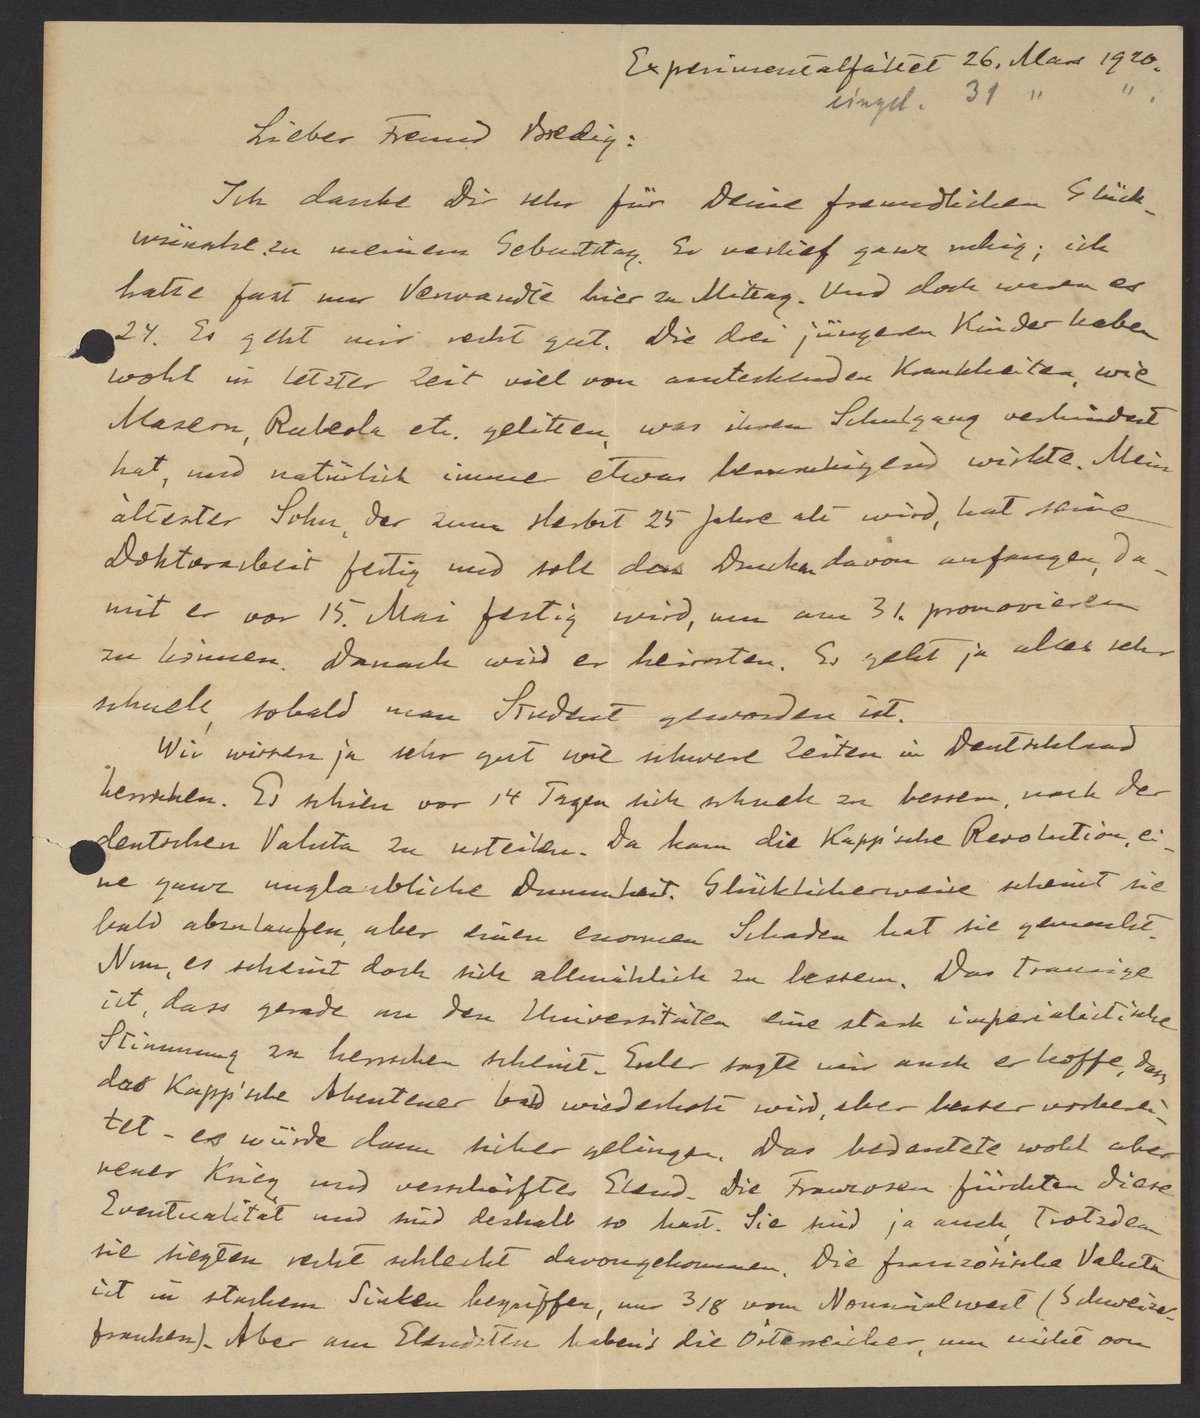 Experimentalfältet 26. Mars 1920.
eingel. 31 " " .
Lieber Freund Bredig:
Ich danke Dir sehr für Deine freundlichen Glück-
wünsche zu meinem Geburtstag. Er verlief ganz ruhig; ich
hatte fast nur Verwandte hier zu Mittag. Und doch waren es
24. Es geht mir recht gut. Die drei jüngeren Kinder haben
wohl in letzter Zeit viel von ansteckenden Krankheiten, wie
Masern, Rubeola etc. gelitten, was ihren Schulgang verhindert
hat, und natürlich immer etwas beunruhigend wirkte. Mein
ältester Sohn, der zum Herbst 25 Jahre alt wird, hat seine
Doktorarbeit fertig und soll das Drucken davon anfangen, da-
mit er vor 15. Mai fertig wird, um am 31. promovieren
zu können. Danach wird er heiraten. Es geht ja alles sehr
schnell, sobald man Student geworden ist.
Wir wissen ja sehr gut wie schwere Zeiten in Deutschland
herrschen. Es schien vor 14 Tagen sich schnell zu bessern, nach der
deutschen Valuta zu urteilen. Da kam die Kapp'sche Revolution, ei-
ne ganz unglaubliche Dummheit. Glücklicherweise scheint sie
bald abzulaufen, aber einen enormen Schaden hat sie gemacht.
Nun, es scheint doch sich allmählich zu bessern. Das traurige
ist, dass gerade an den Universitäten eine stark imperialistische
Stimmung zu herrschen scheint. Euler sagte mir auch er hoffe, dass
das Kapp'sche Abenteuer bald wiederholt wird, aber besser vorberei-
tet - es würde dann sicher gelingen. Das bedeutete wohl aber
neuer Krieg und verschärftes Elend. Die Franzosen fürchten diese
Eventualität und sind deshalb so hart. Sie sind ja auch, trotzdem
sie siegten recht schlecht davongekommen. Die französische Valuta
ist in starkem Sinken begriffen, nur 3/8 vom Nominalwert (Schweizer-
franken). Aber am Elendsten haben's die Österreicher, um nicht von